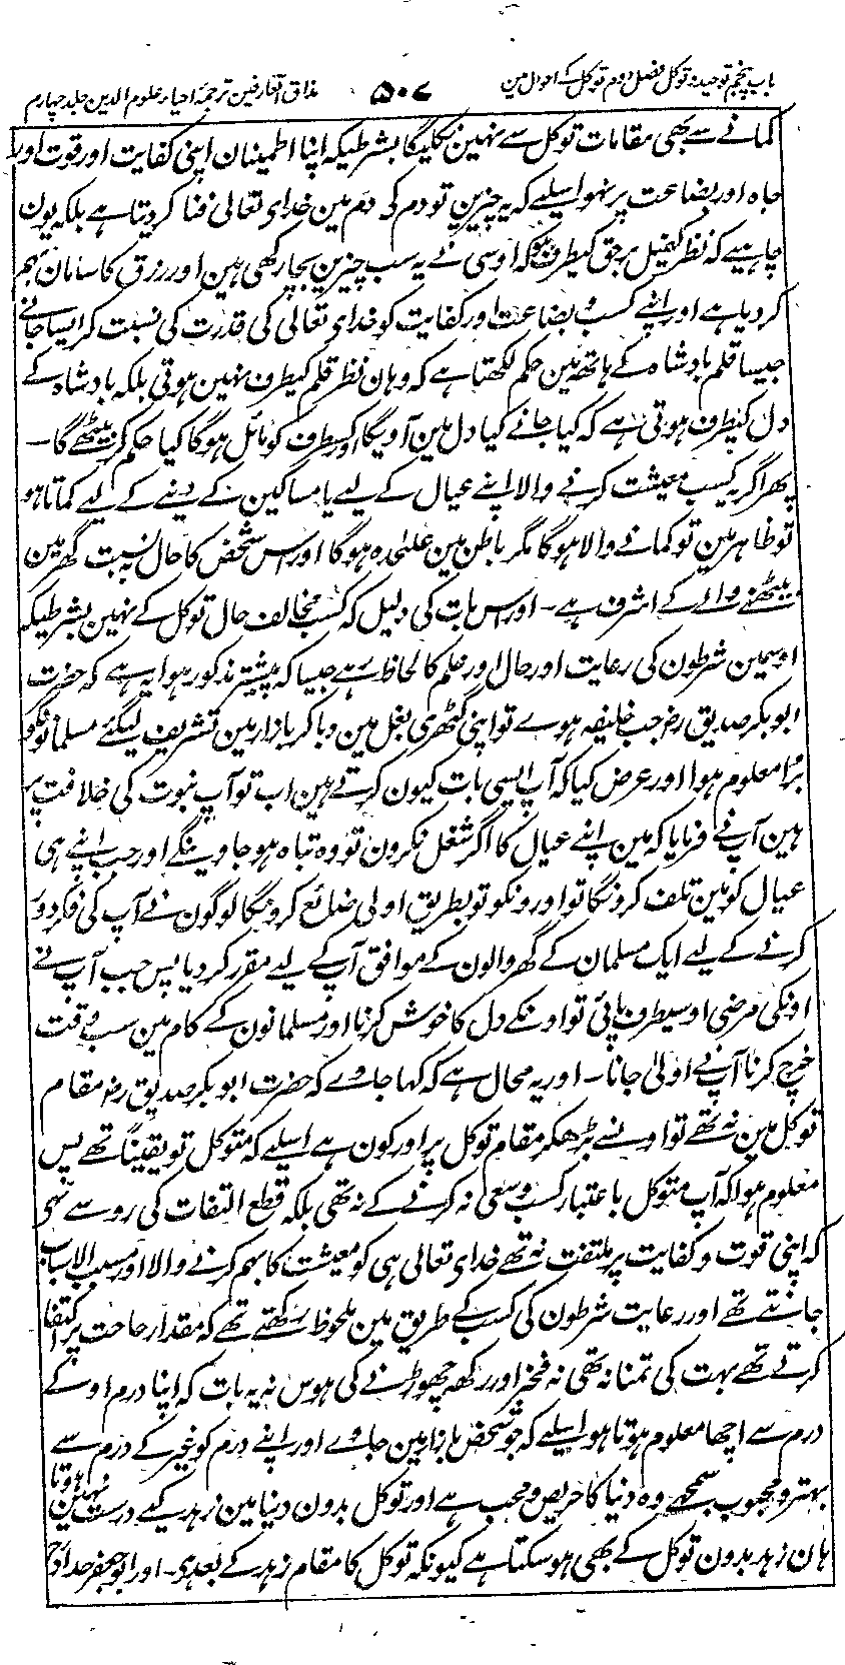 باب پنجم توحید و توکل فصل دوم توکل کے احوال مین ۵۰۷ مذاق العارفین ترجمۂ احیاء علوم الدین جلد چہارم
کمانے سے بھی مقامات توکل سے نہین نکلیگا بشرطیکہ اپنا اطمینان اپنی کفایت اور قوت اور
جاہ اور بضاعت پر نہو اسلیے کہ یہ چیزین تو دم کی دم مین خدای تعالی فنا کر دیتا ہے بلکہ یون
چاہیے کہ نظر کفیل برحق کیطرف ہو کہ اوسی نے یہ سب چیزین بچا رکھی ہین اور رزق کا سامان بہم
کر دیا ہے اور اپنے کسب و بضاعت اور کفایت کو خدای تعالی کی قدرت کی نسبت کر ایسا جانے
جیسا قلم بادشاہ کے ہاتھ مین حکم لکھتا ہے کہ وہان نظر قلم کیطرف نہین ہوتی بلکہ بادشاہ کے
دل کیطرف ہوتی ہے کہ کیا جانے کیا دل مین آویگا اور کسطرف کو مائل ہوگا کیا حکم کر بیٹھے گا۔
پھر اگر یہ کسب معیشت کرنے والا اپنے عیال کے لیے یا مساکین کے دینے کے لیے کماتا ہو
تو ظاہر مین تو کمانے والا ہوگا مگر باطن مین علیحدہ ہوگا اور اس شخص کا حال بہ نسبت گھر مین
بیٹھنے والے کے اشرف ہے۔ اور اس بات کی دلیل کہ کسب مخالف حال توکل کے نہین بشرطیکہ
اوسمین شرطون کی رعایت اور حال اور علم کا لحاظ رہے جیسا کہ پیشتر مذکور ہوا یہ ہے کہ حضرت
ابوبکر صدیق رض جب خلیفہ ہوے تو اپنی گٹھری بغل مین دبا کر بازار مین تشریف لیگئے مسلمانونکو
بُرا معلوم ہوا اور عرض کیا کہ آپ ایسی بات کیون کرتے ہین اب تو آپ نبوت کی خلافت پر
ہین آپ نے فرمایا کہ مین اپنے عیال کا اگر شغل نکرون تو وہ تباہ ہو جاوینگے اور جب اپنے ہی
عیال کو مین تلف کرونگا تو اورونکو تو بطریق اولی ضائع کرونگا لوگون نے آپ کی فکر دور
کرنے کے لیے ایک مسلمان کے گھر والون کے موافق آپ کے لیے مقرر کر دیا پس جب آپ نے
اونکی مرضی اوسیطرف پائی تو اونکے دل کا خوش کرنا اور مسلمانون کے کام مین سب وقت
خرچ کرنا آپ نے اولی جانا۔ اور یہ محال ہے کہ کہا جاوے کہ حضرت ابوبکر صدیق رض مقام
توکل مین نہ تھے تو اونسے بڑھکر مقام توکل پر اور کون ہے اسلیے کہ متوکل تو یقیناً تھے پس
معلوم ہوا کہ آپ متوکل باعتبار کسب و سعی نہ کرنے کے نہ تھی بلکہ قطع التفات کی رو سے تھی
کہ اپنی قوت و کفایت پر ملتفت نہ تھے خدای تعالی ہی کو معیشت کا بہم کرنے والا اور مسبب الاسباب
جانتے تھے اور رعایت شرطون کی کسب کے طریق مین ملحوظ رکھتے تھے کہ مقدار حاجت پر اکتفا
کرتے تھے بہت کی تمنا نہ تھی نہ فخر اور رکھ چھوڑنے کی ہوس نہ یہ بات کہ اپنا درم اور کے
درم سے اچھا معلوم ہوتا ہو اسلیے کہ جو شخص بازار مین جاوے اور اپنے درم کو غیر کے درم سے
بہتر و محبوب سمجھے وہ دنیا کا حریص و محب ہے اور توکل بدون دنیا مین زہد کیے درست نہین ہوتا
ہان زہد بدون توکل کے بھی ہو سکتا ہے کیونکہ توکل کا مقام زہد کے بعد ہی۔ اور ابو جعفر حداد رح